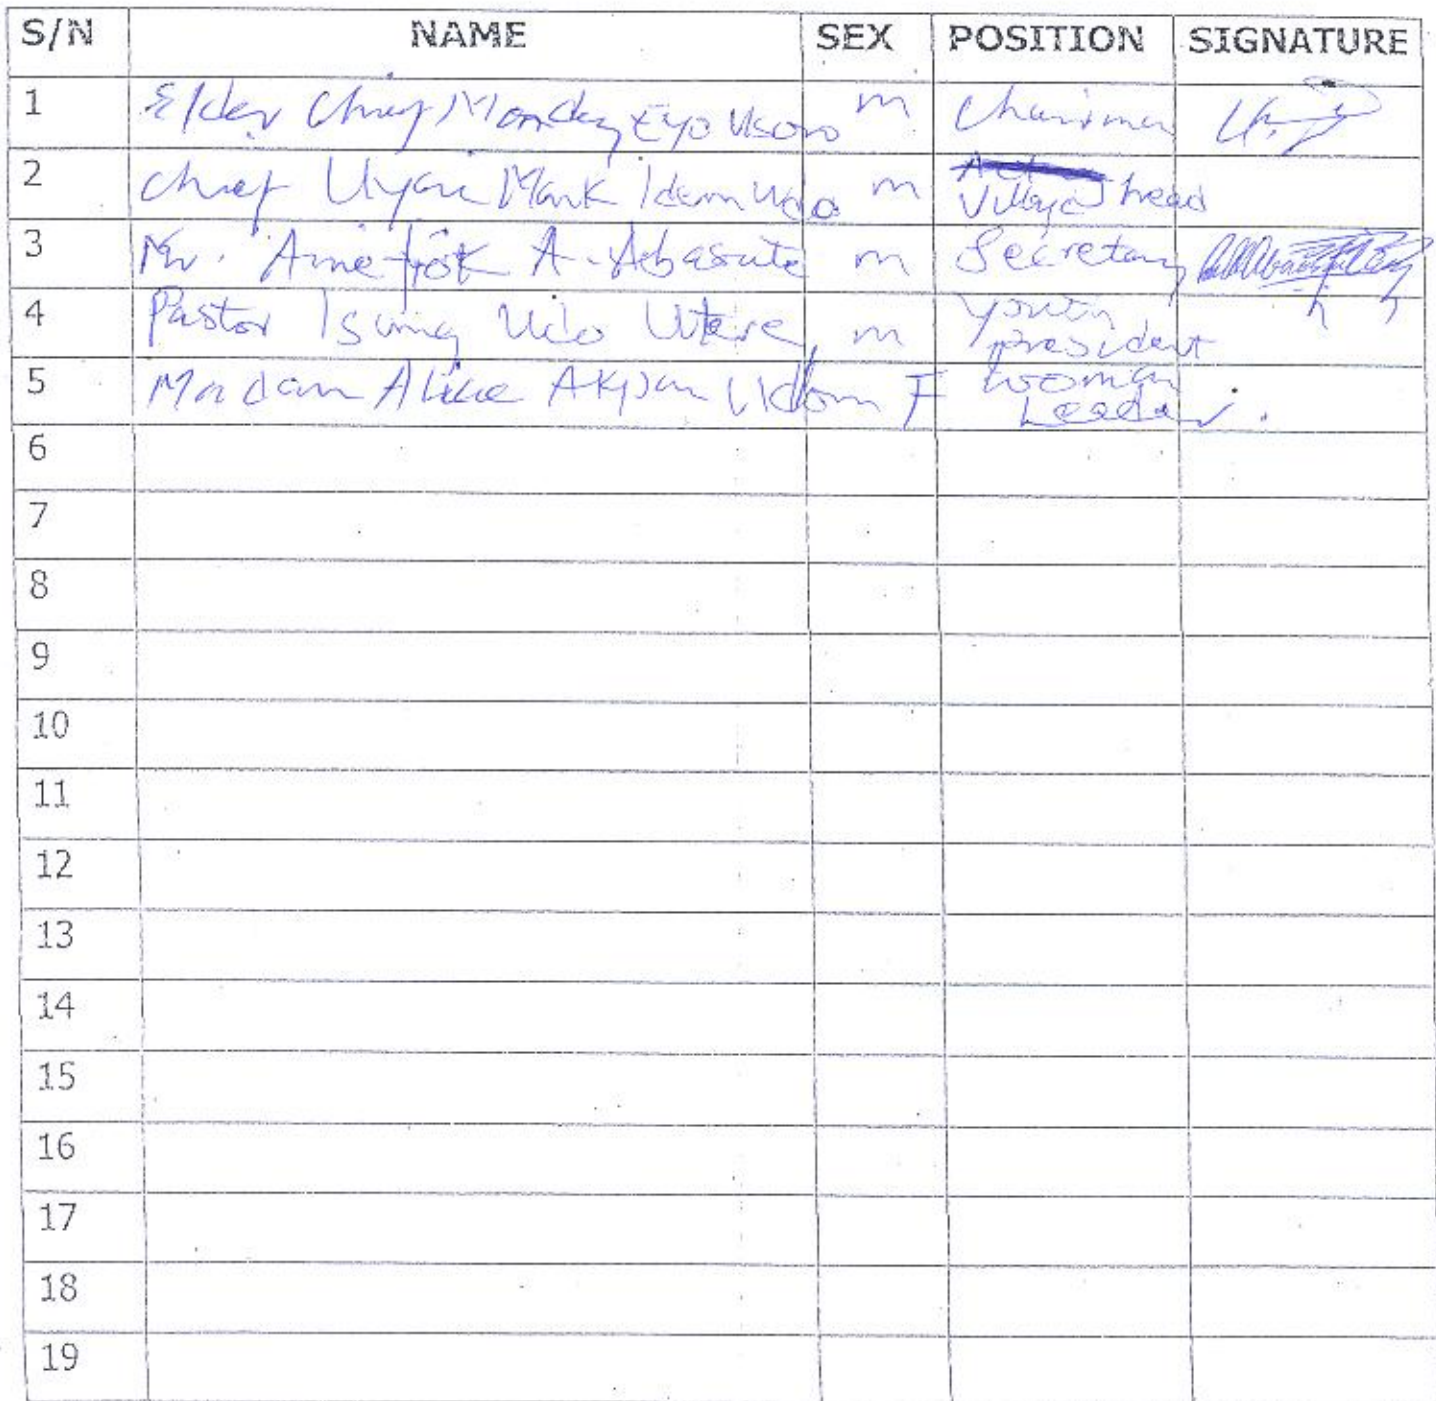 S/N NAME SEX POSITION SIGNATURE
1 Elder Chief Monday Eyo Usoro m Chairman
2 Chief Uyai Mark Idem Udo m Village head
3 Mr. Ametok A. Abasute m Secretary
4 Pastor Isung Udo Utere m Youth
president
5 Madam Alice Akpan Udom F Woman
Leader
6
7
8
9
10
11
12
13
14
15
16
17
18
19